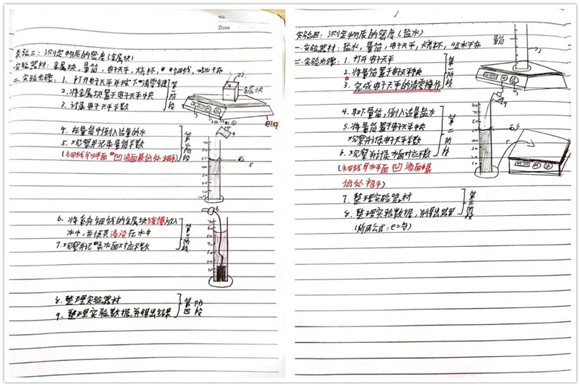 No.
Date
实验三：测定物质的密度（金属块）
实验器材：金属块，量筒，电子天平，烧杯，细线，吸水纸
实验步骤：1. 打开电子天平并按下“清零”键
2. 将金属块置于电子天平中央
3. 记录电子天平示数
第一阶段
金属块
4. 在量筒中倒入适量的水
5. 观察并记录量筒示数
（视线与水平面“凹”液面最低处相平）
第二阶段
6. 将系有细线的金属块缓慢放入
水中，并使其浸没在水中
7. 观察并记录水面对应示数
第三阶段
8. 整理实验器材
9. 整理实验数据，并得出结果
第四阶段
实验四：测定物质的密度（盐水）
一. 实验器材：盐水，量筒，电子天平，烧杯，吸水纸
二. 实验步骤：1. 打开电子天平
2. 将量筒置于电子天平中央
3. 完成电子天平的清零操作
第一阶段
量筒
4. 取下量筒，倒入适量盐水
5. 将量筒置于电子天平中央
观察并记录电子天平示数
6. 观察并记录水面对应示数
（视线与水平面凹液面最
低处相平）
第二阶段
7. 整理实验器材
8. 整理实验数据，并得出结果
第三阶段